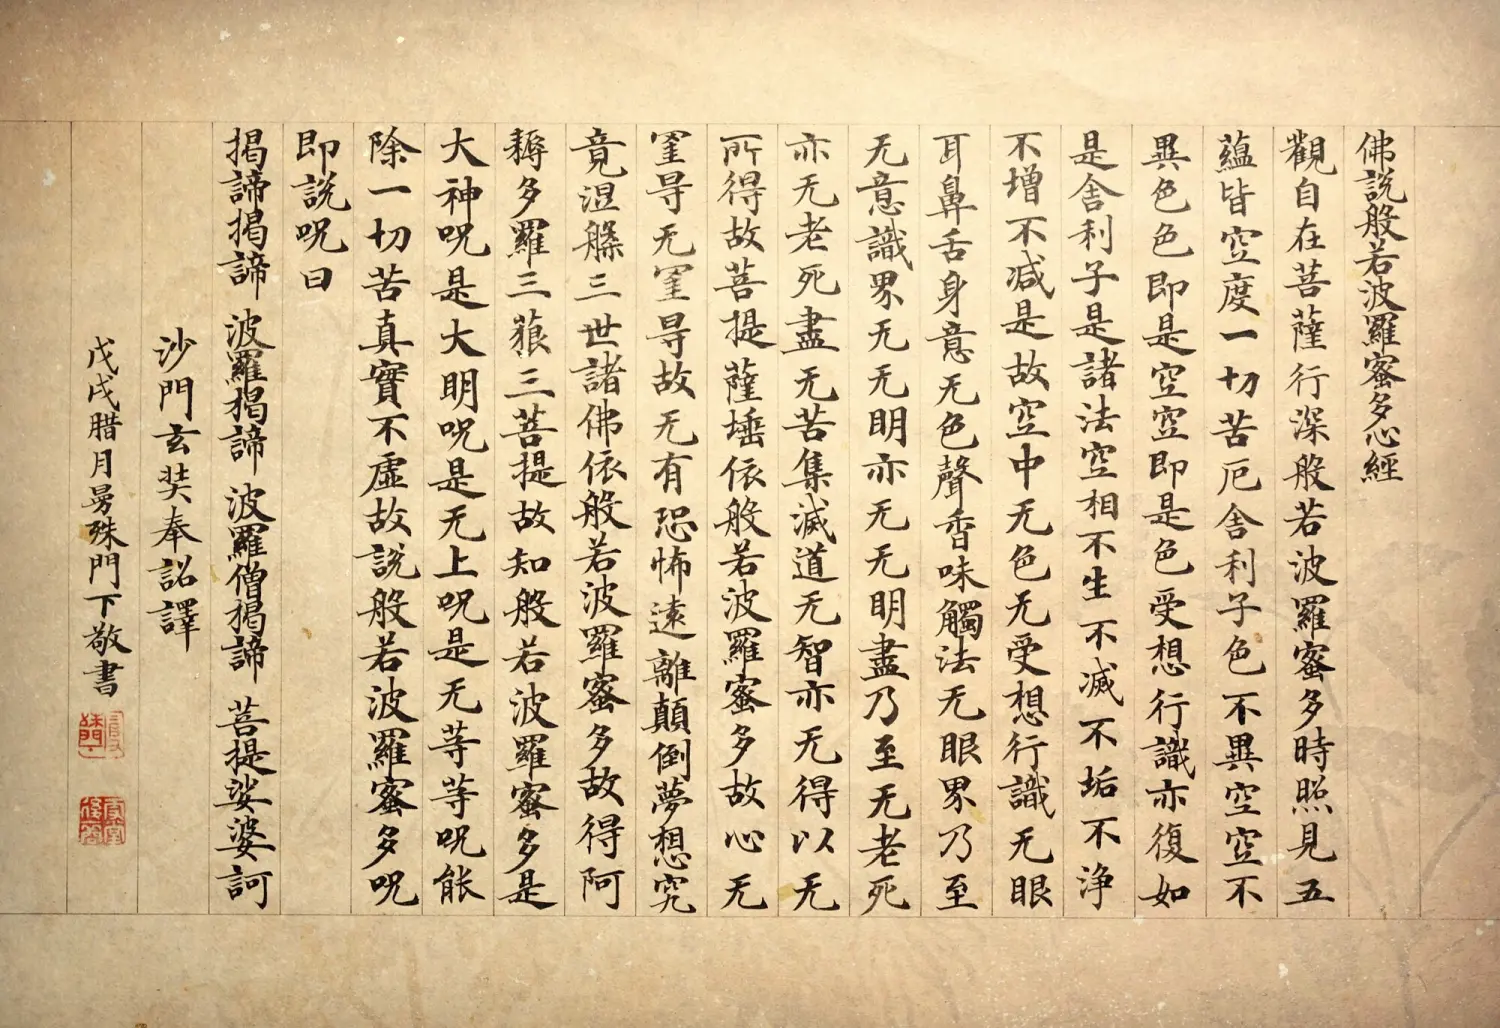 佛説般若波羅蜜多心經
觀自在菩薩行深般若波羅蜜多時照見五
蘊皆空度一切苦厄舍利子色不異空空不
異色色即是空空即是色受想行識亦復如
是舍利子是諸法空相不生不滅不垢不浄
不增不减是故空中无色无受想行識无眼
耳鼻舌身意无色聲香味觸法无眼界乃至
无意識界无无明亦无无明盡乃至无老死
亦无老死盡无苦集滅道无智亦无得以无
所得故菩提薩埵依般若波羅蜜多故心无
罣㝵无罣㝵故无有恐怖遠離顛倒夢想究
竟涅槃三世諸佛依般若波羅蜜多故得阿
耨多羅三藐三菩提故知般若波羅蜜多是
大神呪是大明呪是无上呪是无等等呪能
除一切苦真實不虛故説般若波羅蜜多呪
即説呪曰
揭諦揭諦 波羅揭諦 波羅僧揭諦 菩提娑婆訶
沙門玄奘奉詔譯
戊戌腊月曼殊門下敬書